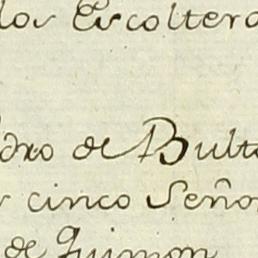 los Escoltero
dro de Bult
cinco Seño
de Quimon